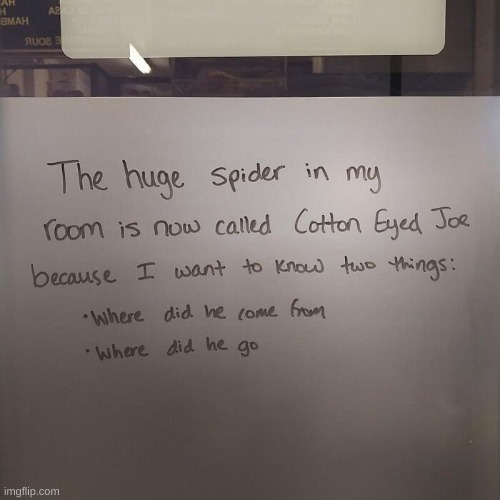 The huge spider in my
room is now called Cotton Eyed Joe
because I want to know two things:
· Where did he come from
· Where did he go
imgflip.com